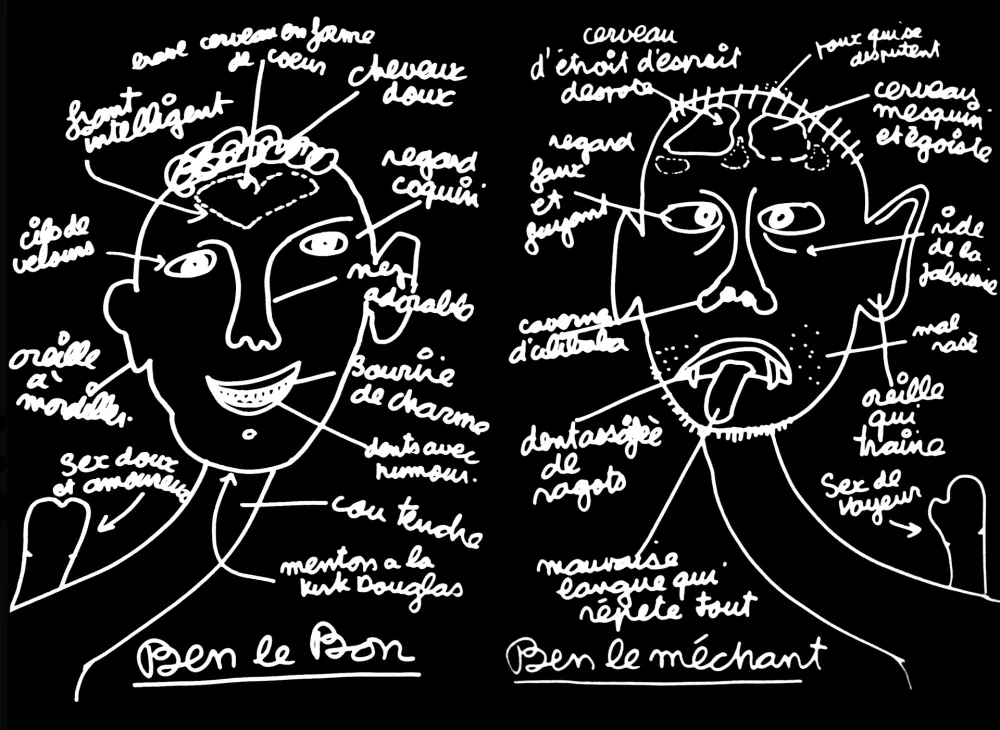 cerveau en forme
de coeur
cheveux
doux
front
intelligent
regard
coquin
cils de
velours
nez
adorable
oreille
à
mordiller.
sourire
de charme
dents avec
humour.
sex doux
et amoureux
cou tendre
menton a la
Kirk Douglas
Ben le Bon
cerveau
d'étroit d'esprit
despote
poux qui se
disputent
cerveau
mesquin
et égoiste
regard
faux
et
fuyant
ride
de la
jalousie
caverne
d'alibaba
mal
rasé
oreille
qui
traine
dent assoifée
de
ragots
sex de
voyeur
mauvaise
langue qui
répète tout
Ben le méchant